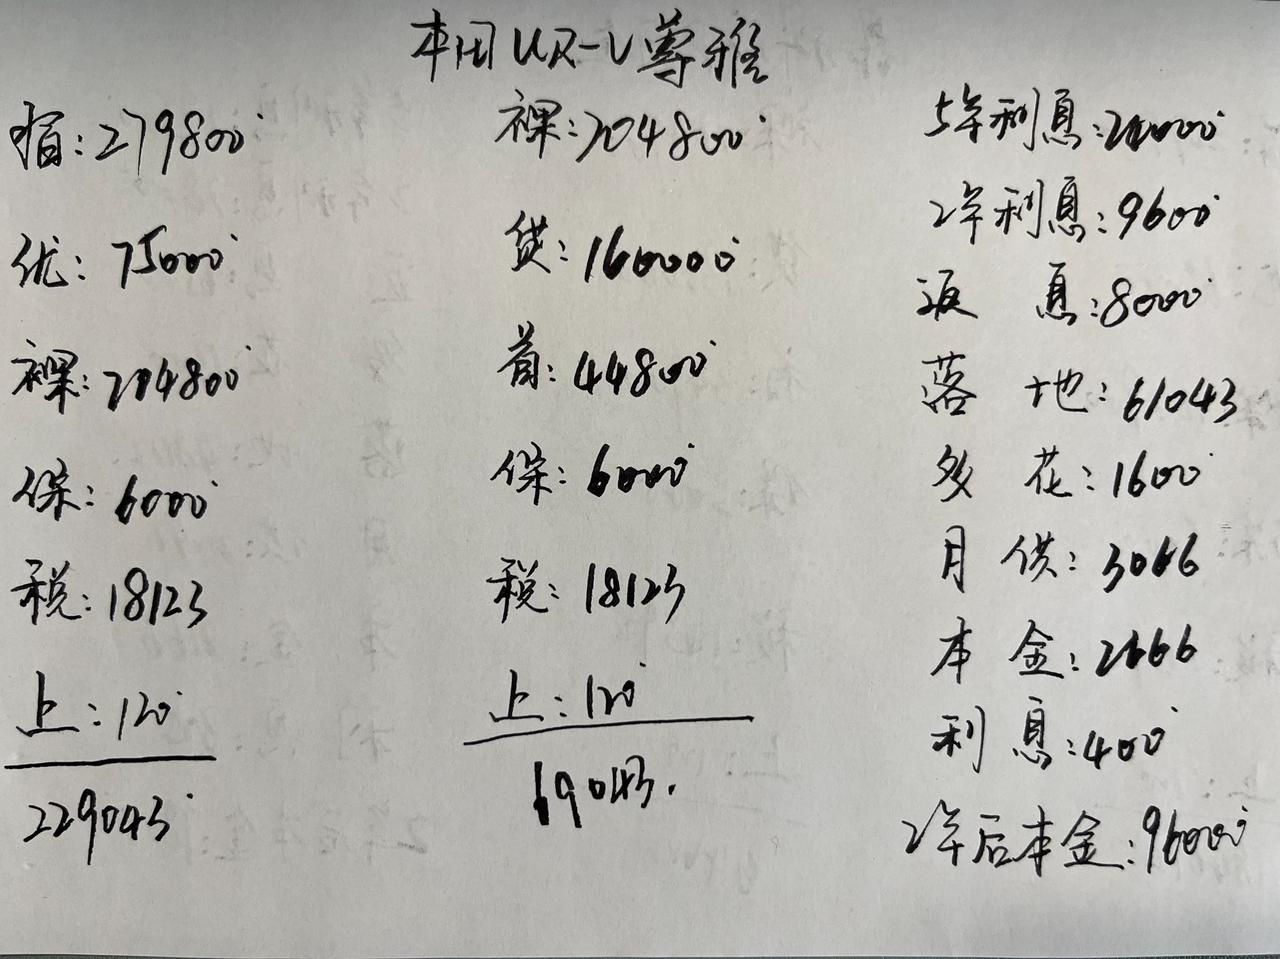 本田UR-V尊雅
指:279800
优:75000
裸:204800
保:6000
税:18123
上:120
229043
裸:204800
贷:160000
首:44800
保:6000
税:18123
上:120
69043.
5年利息:24000
2年利息:9600
返息:8000
落地:61043
多花:1600
月供:3066
本金:2666
利息:400
2年后本金:96000